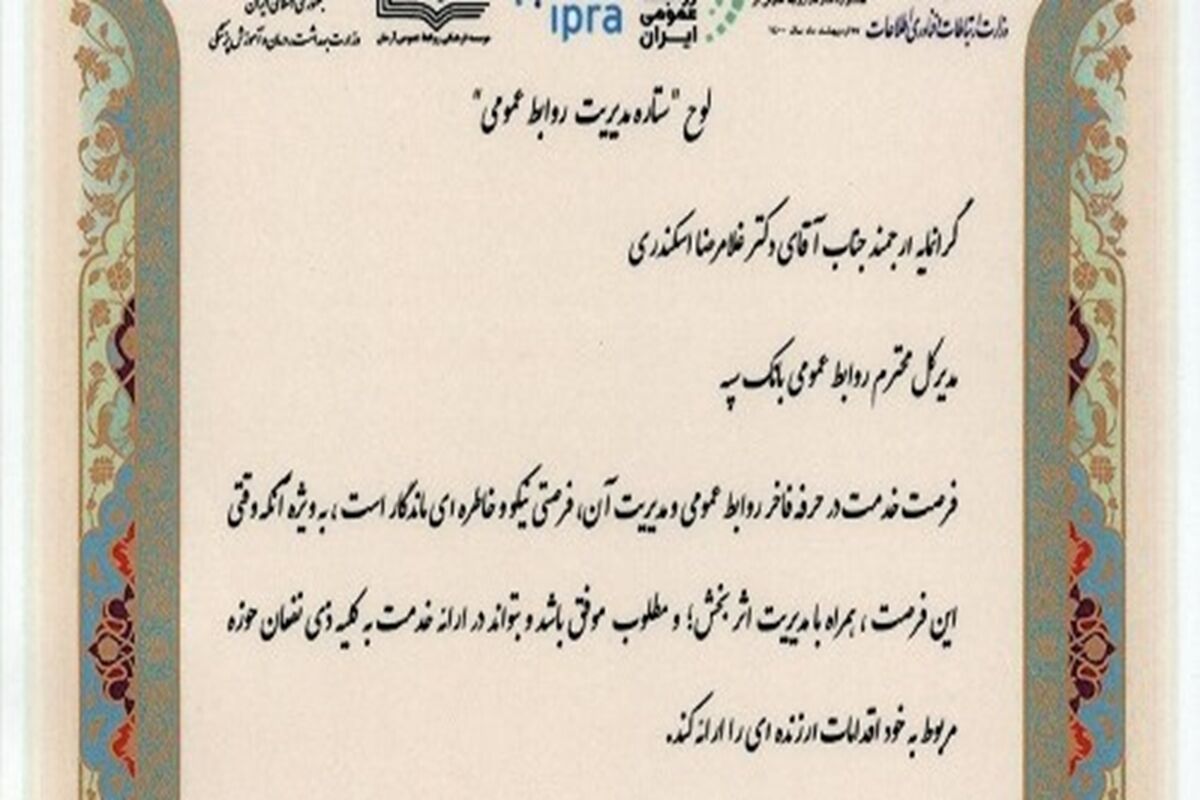 جمهوری اسلامی ایران
وزارت بهداشت، درمان و آموزش پزشکی
موسسه فرهنگی روابط عمومی آرمان
ipra
عمومی
ایران
وزارت ارتباطات و فناوری اطلاعات
لوح "ستاره مدیریت روابط عمومی"
گرانمایه ارجمند جناب آقای دکتر غلامرضا اسکندری
مدیرکل محترم روابط عمومی بانک سپه
فرصت خدمت در حرفه فاخر روابط عمومی و مدیریت آن، فرصتی نیکو و خاطره ای ماندگار است، به ویژه آنکه وقتی
این فرصت، همراه با مدیریت اثر بخش؛ و مطلوب موفق باشد و بتواند در ارائه خدمت به کلیه ذی نفعان حوزه
مربوط به خود اقدامات ارزنده ای را ارائه کند.